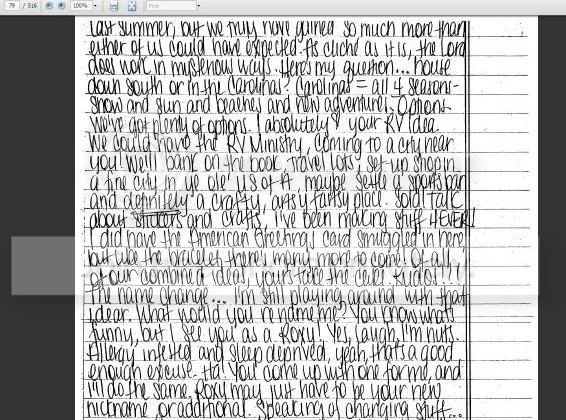 79 / 516 100% Find
last summer, but we truly have gained so much more than
either of us could have expected. As cliché as it is, the Lord
does work in mysterious ways. Here's my question... house
down south or in the Carolinas? Carolinas = all 4 seasons-
snow and sun and beaches and new adventure! Options-
We've got plenty of options. I absolutely your RV idea.
We could have the RV Ministry, coming to a city near
you! We'll bank on the book, travel lots, set up shop in
a fine city in ye ole' US of A, maybe settle a sports bar
and definitely a crafty, artsy fartsy place. Sold! Talk
about and crafts, I've been making stuff 4EVER!!
I did have the American Greetings card smuggled in here
but like the bracelet there's many more to come! Of all
of our combined ideas, yours take the cake. Kudos!!!!
The name change... I'm still playing around with that
idear. What would you rename me? You know what's
funny, but I see you as a Roxy! Yes, laugh. I'm nuts.
Allergy infested and sleep deprived, yeah, that's a good
enough excuse. Ha! You come up with one for me, and
I'll do the same. Roxy may just have to be your new
nickname or additional. Speaking of changing stuff...